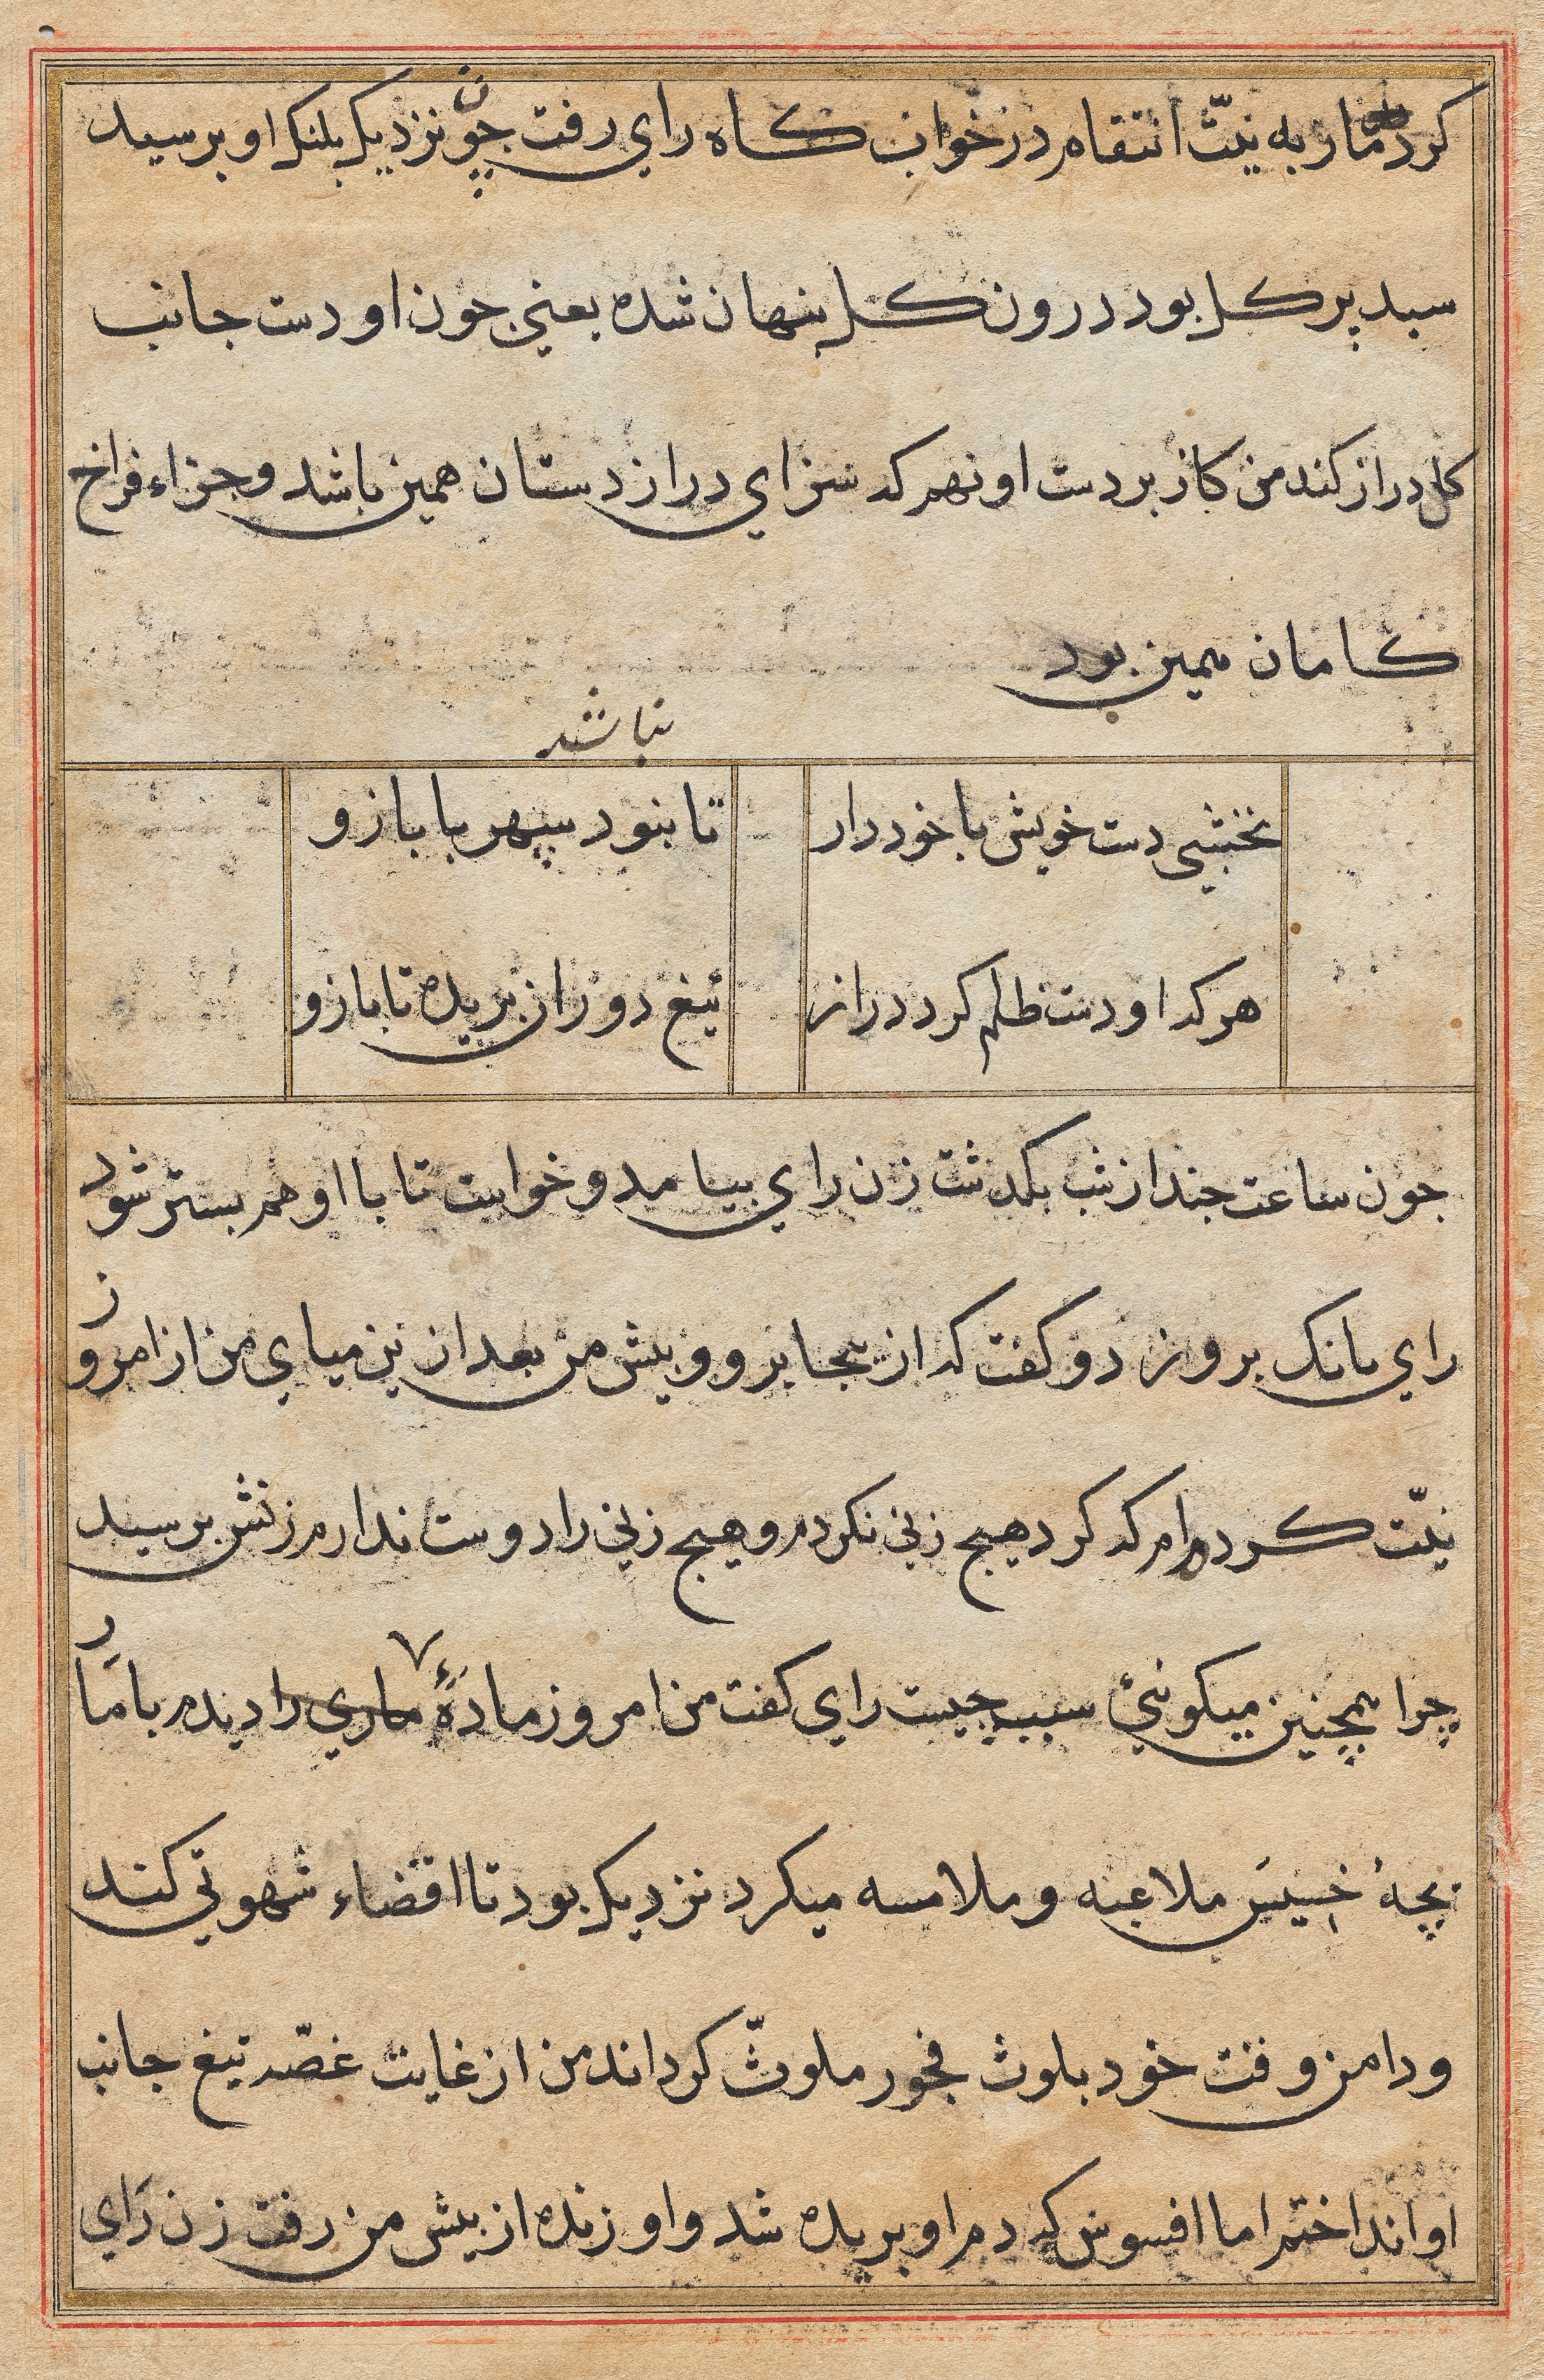 کرد مار به نیّت انتقام در خوان کاه رای رفت چون نزدیک پلنک او برسید
سبد پر کل بود درون کل پنهان شده یعنی جون او دست جانب
کل دراز کند من کاز بر دست او نهم که سزای دراز دستان همین باشد و جزاء فراخ
کامان همین بود
نباشد
نخشبی دست خویش با خود دار
تا بنود سپهر با بازو
هر که او دست ظلم کرد دراز
تیغ دوران بریده تا بازو
جون ساعت جند از شب بکدشت زن رای بیامد و خواست تا با او هم بستر شود
رای بانک برو زد و کفت که از ینجا برو و پیش من بعد ازین میای من از امروز
نیّت کرده‌ام که کرد هیج زنی نکردم و هیج زنی را دوست ندارم زنش برسید
چرا همچنین میکونئ سبب چیست رای کفت من امروز مادۀ ماری را دیدم با مار
بچۀ خسیس ملاعبه و ملامسه میکرد نزدیک بود تا اقضاء شهوتی کند
و دامن وقت خود بلوث فجور ملوّث کرداند من از غایت غصّه تیغ جانب
او انداختم اما افسوس که دم او بریده شد و او زنده از پیش من رفت زن رای